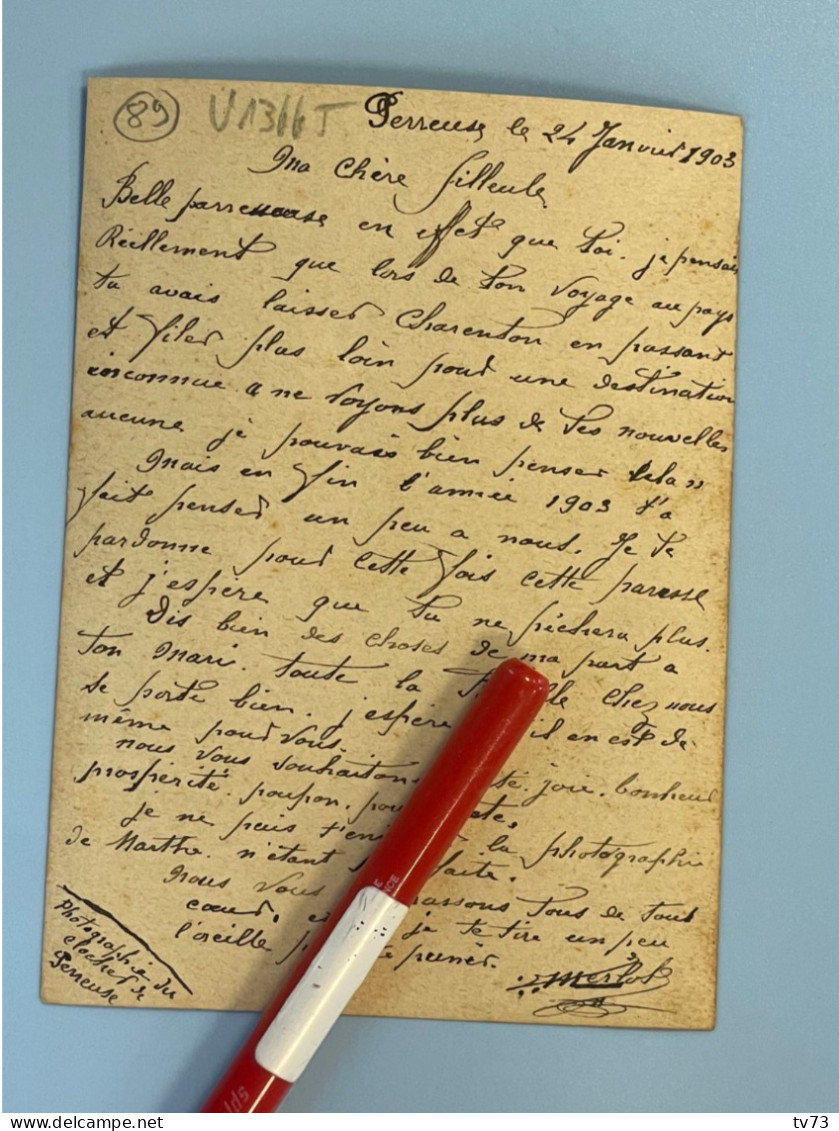 89 U1366T
Perreuse le 24 Janvier 1903
Ma Chère filleule
Belle parresseuse en effet que toi. je pensais
Réellement que lors de ton voyage au pays
tu avais laisser Charenton en passant
et filer plus loin pour une destination
inconnue a ne voyons plus de tes nouvelles
aucune je pouvais bien penser cela"
Mais en fin l'année 1903 t'a
fait penser un peu a nous. Je te
pardonne pour cette fois cette paresse
et j'espère que tu ne pêchera plus.
Dis bien des choses de ma part a
ton Mari. toute la chez nous
se porte bien. j'espère il en est de
même pour vous.
nous vous souhaitons té. joie. bonheur
prospérité. poupon.
je ne puis la photographie
de Marthe. n'étant faite.
Nous vous assons tous de tout
cœur. je te tire un peu
l'oreille punir.
Merlot
Photographie du
clocher de
Perreuse
tv73